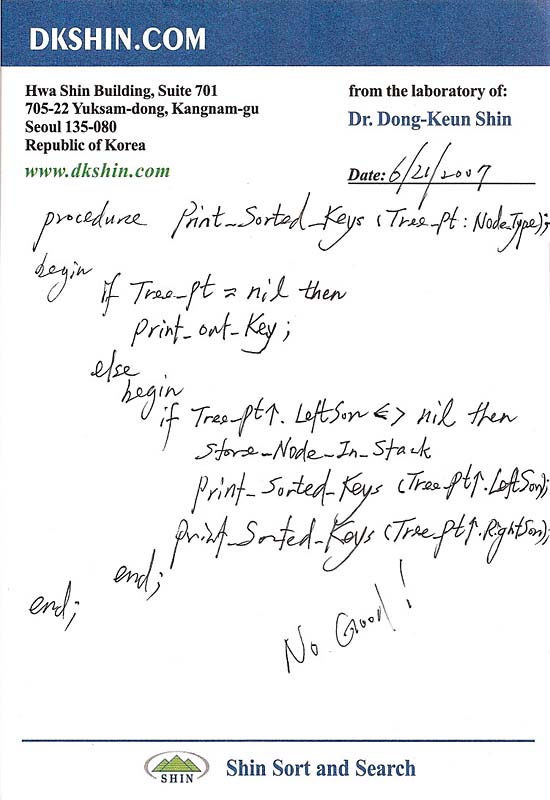 DKSHIN.COM
Hwa Shin Building, Suite 701
705-22 Yuksam-dong, Kangnam-gu
Seoul 135-080
Republic of Korea
www.dkshin.com
from the laboratory of:
Dr. Dong-Keun Shin
Date: 6/21/2007
procedure Print_Sorted_Keys (Tree_pt : NodeType);
begin
if Tree_pt = nil then
print_out_Key;
else
begin
if Tree_pt↑. LeftSon <> nil then
Store_Node_In_Stack
Print_Sorted_Keys (Tree_pt↑.LeftSon);
print_Sorted_Keys (Tree_pt↑.RightSon);
end;
end;
No Good!
SHIN
Shin Sort and Search